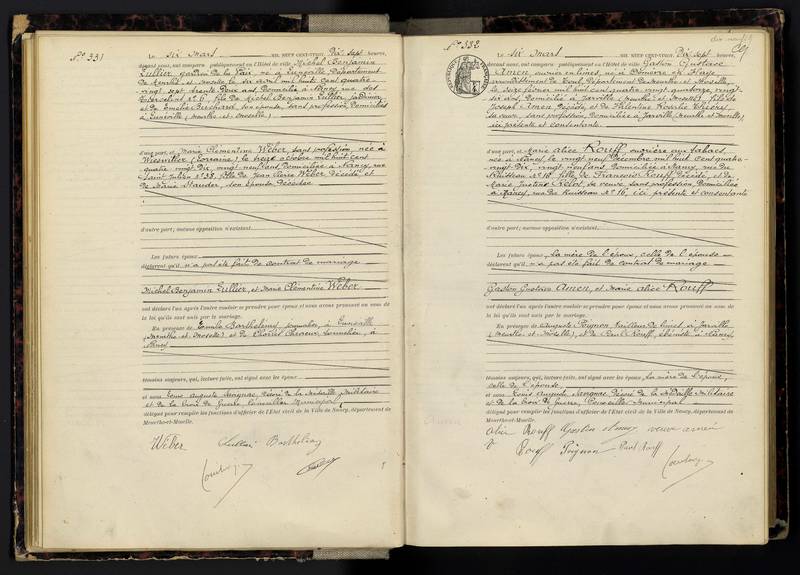 N° 331
Le six mars mil neuf cent-vingt, Dix sept heures,
devant nous, ont comparu publiquement en l'Hôtel de ville Michel Benjamin
Lullier, gardien de la Paix, né à Lunéville Département
de Meurthe et Moselle, le six avril mil huit cent quatre
vingt sept, trente deux ans, Domicilié à Nancy, rue des
N° 6, fils de Michel Benjamin Lullier, jardinier,
et de Amélie son épouse, sans profession, Domiciliés
à Lunéville (Meurthe et Moselle)
d'une part, et Marie Clémentine Weber, sans profession, née à
(Lorraine), le treize octobre mil huit cent
quatre vingt dix, vingt neuf ans, Domiciliée à Nancy, rue
Saint Julien N° 38, fille de Jean Pierre Weber Décédé et
de Marie son épouse Décédée
d'autre part; aucune opposition n'existant.
Les futurs époux
déclarent qu'il n'a pas été fait de contrat de mariage
Michel Benjamin Lullier, et Marie Clémentine Weber
ont déclaré l'un après l'autre vouloir se prendre pour époux et nous avons prononcé au nom de
la loi qu'ils sont unis par le mariage.
En présence de Emile Barthélemy, à Lunéville
(Meurthe et Moselle) et de Charles tonnelier, à
Nancy
témoins majeurs, qui, lecture faite, ont signé avec les époux
et nous Louis Auguste décoré de la Médaille Militaire
et de la Croix de Guerre, Conseiller Municipal
délégué pour remplir les fonctions d'officier de l'Etat civil de la Ville de Nancy, département de
Meurthe-et-Moselle.
Weber Lullier Barthélemy
N° 332
Le six mars mil neuf cent-vingt, Dix sept heures,
devant nous, ont comparu publiquement en l'Hôtel de ville Gaston Gustave
Amen, ouvrier en limes, né à Domèvre en Haye
arrondissement de Toul, Département de Meurthe et Moselle,
le seize février mil huit cent quatre vingt quatorze, vingt
six ans, Domicilié à Jarville (Meurthe et Moselle), fils de
Joseph Amen, Décédé, et de Valentine Rosalie
sa veuve, sans profession, Domiciliée à Jarville (Meurthe et Moselle),
ici présente et consentante
d'une part, et Marie Alice Rouff, ouvrière aux tabacs,
née à Nancy, le vingt neuf Décembre mil huit cent quatre
vingt Dix, vingt neuf ans, Domiciliée à Nancy, rue du
Ruisseau N° 16, fille de François Rouff, Décédé, et de
Marie Justine sa veuve sans profession, Domiciliée
à Nancy, rue du Ruisseau N° 16, ici présente et consentante
d'autre part; aucune opposition n'existant.
Les futurs époux, la mère de l'époux, celle de l'épouse
déclarent qu'il n'a pas été fait de contrat de mariage
Gaston Gustave Amen, et Marie Alice Rouff
ont déclaré l'un après l'autre vouloir se prendre pour époux et nous avons prononcé au nom de
la loi qu'ils sont unis par le mariage.
En présence de Auguste Poignon, tailleur de limes à Jarville
(Meurthe et Moselle), et de Paul Rouff, ébéniste à Nancy,
témoins majeurs, qui, lecture faite, ont signé avec les époux, la mère de l'époux,
celle de l'épouse,
et nous Louis Auguste décoré de la Médaille Militaire
et de la Croix de Guerre, Conseiller Municipal
délégué pour remplir les fonctions d'officier de l'Etat civil de la Ville de Nancy, département de
Meurthe-et-Moselle.
Alice Rouff Gaston Amen veuve Amen
Rouff Poignon Paul Rouff